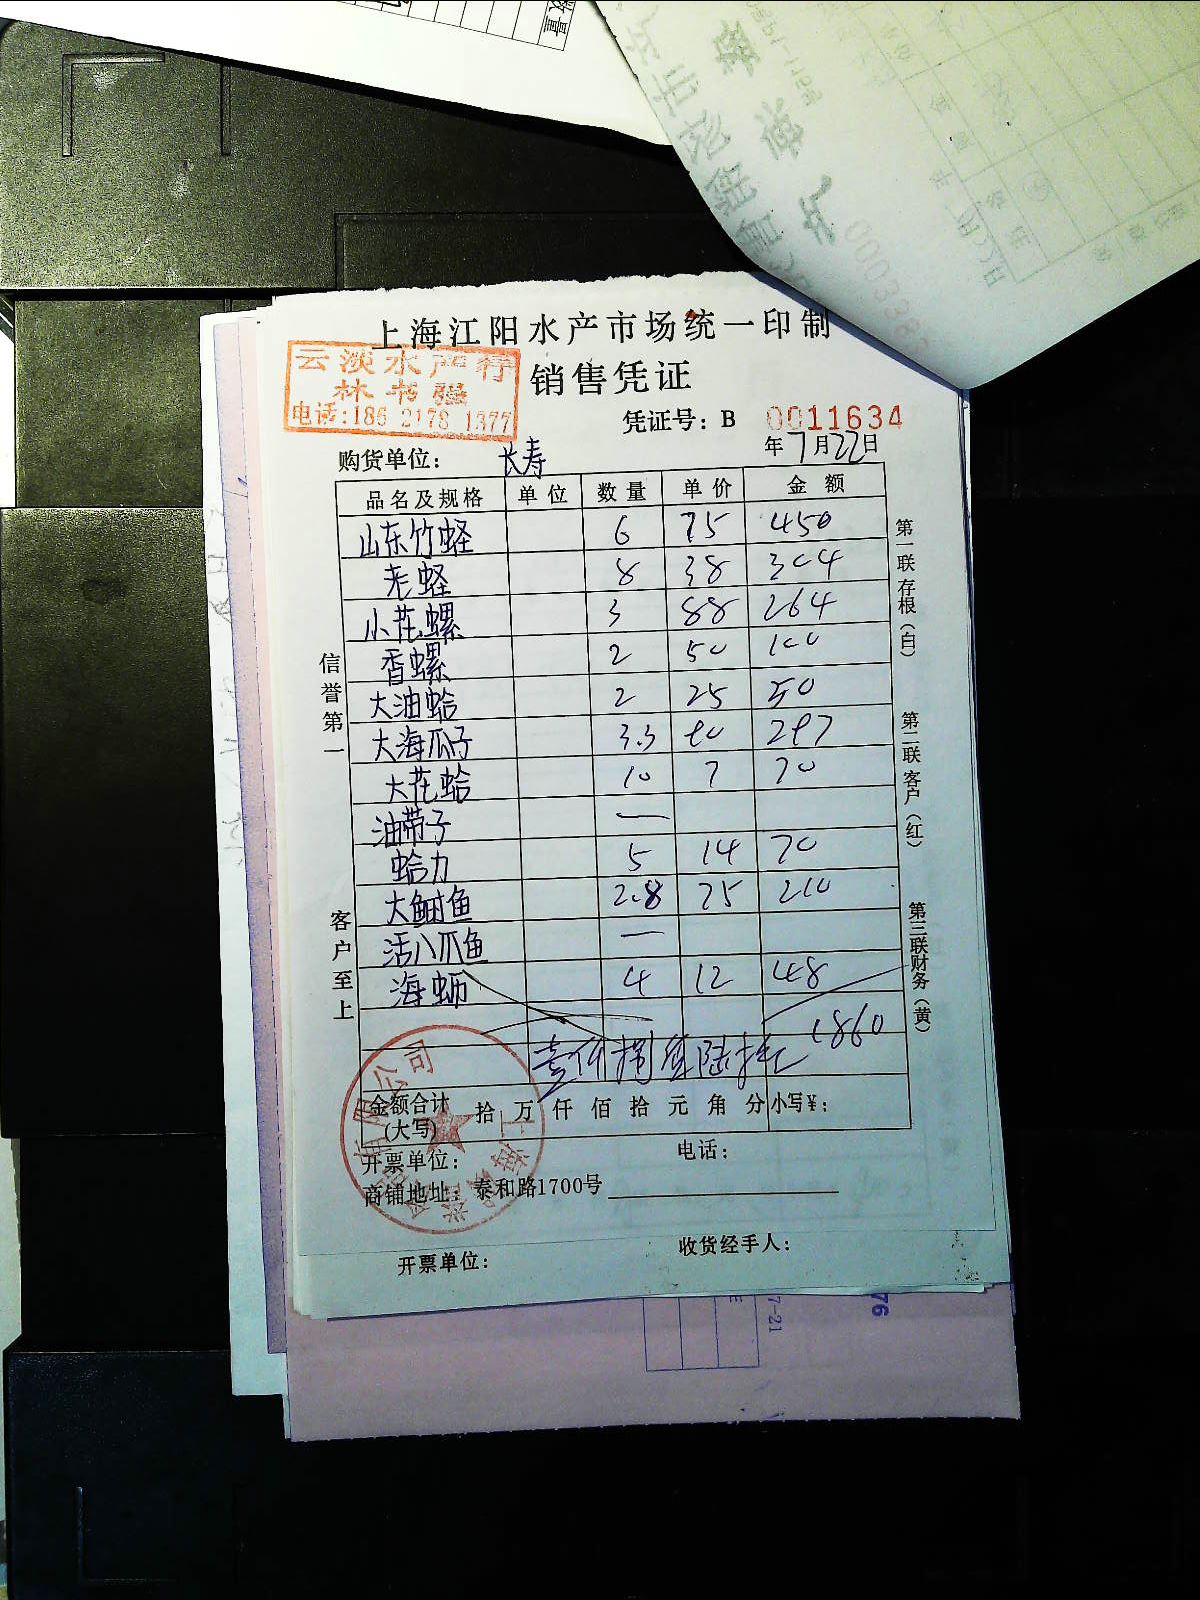 数量
上海江阳水产市场统一印制
云淡水产行
林书强
电话:186 2178 1377
销售凭证
凭证号: B 0011634
年7月22日
购货单位: 长寿
品名及规格 单位 数量 单价 金额
山东竹蛏 6 75 450
老蛏 8 38 304
小花螺 3 88 264
香螺 2 50 100
大油蛤 2 25 50
大海瓜子 3.3 90 297
大花蛤 10 7 70
油带子 —
蛤力 5 14 70
大鲥鱼 2.8 75 210
活八爪鱼 —
海蛎 4 12 48
1860
壹仟捌佰陆拾元
金额合计(大写) 拾 万 仟 佰 拾 元 角 分 小写¥:
开票单位: 电话:
商铺地址: 泰和路1700号
开票单位: 收货经手人:
信誉第一
客户至上
第一联存根(白)
第二联客户(红)
第三联财务(黄)
有限公司
上海
7-21
76